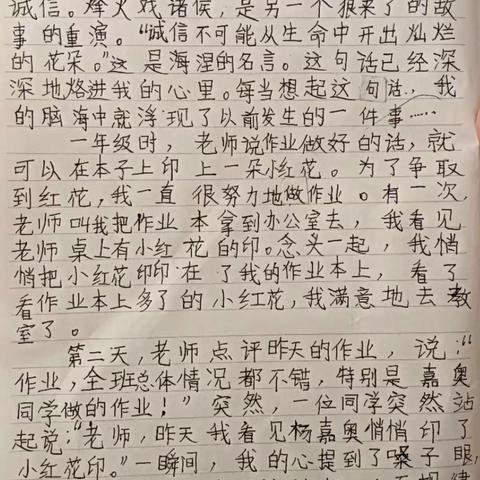 诚信。烽火戏诸侯，是另一个狼来了的故
事的重演。“诚信不可能从生命中开出灿烂
的花朵。”这是海涅的名言。这句话已经深
深地烙进我的心里。每当想起这句话，我
的脑海中就浮现了以前发生的一件事……
一年级时，老师说作业做好的话，就
可以在本子上印上一朵小红花。为了争取
到红花，我一直很努力地做作业。有一次，
老师叫我把作业本拿到办公室去，我看见
老师桌上有小红花的印。念头一起，我悄
悄把小红花印印在了我的作业本上，看了
看作业本上多了的小红花，我满意地去教
室了。
第二天，老师点评昨天的作业，说：“
作业，全班总体情况都不错，特别是嘉奥
同学做的作业！”突然，一位同学突然站
起说：“老师，昨天我看见杨嘉奥悄悄印了
小红花印。”一瞬间，我的心提到了嗓子眼，